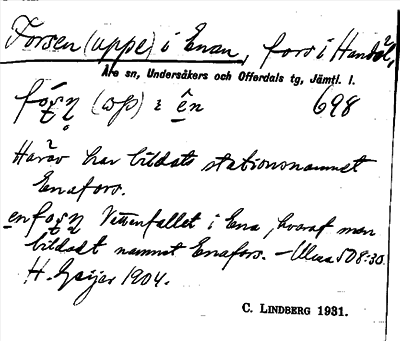 Forsen (uppe) i Enan, fors i Handöl,
Åre sn, Undersåkers och Offerdals tg, Jämtl. l.
(up) i ên 698
Härav har bildats stationsnamnet
Enafors.
Vattenfallet i Ena, hvaraf man
bildadt namnet Enafors. – Ulma 508:30
H. Geijer 1904.
C. LINDBERG 1931.